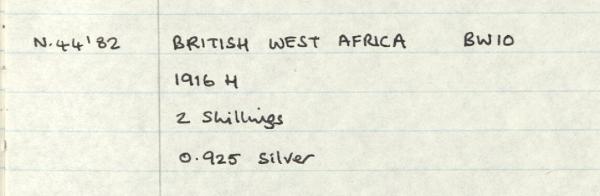 N.44'82 BRITISH WEST AFRICA BW10
1916 H
2 Shillings
0.925 silver